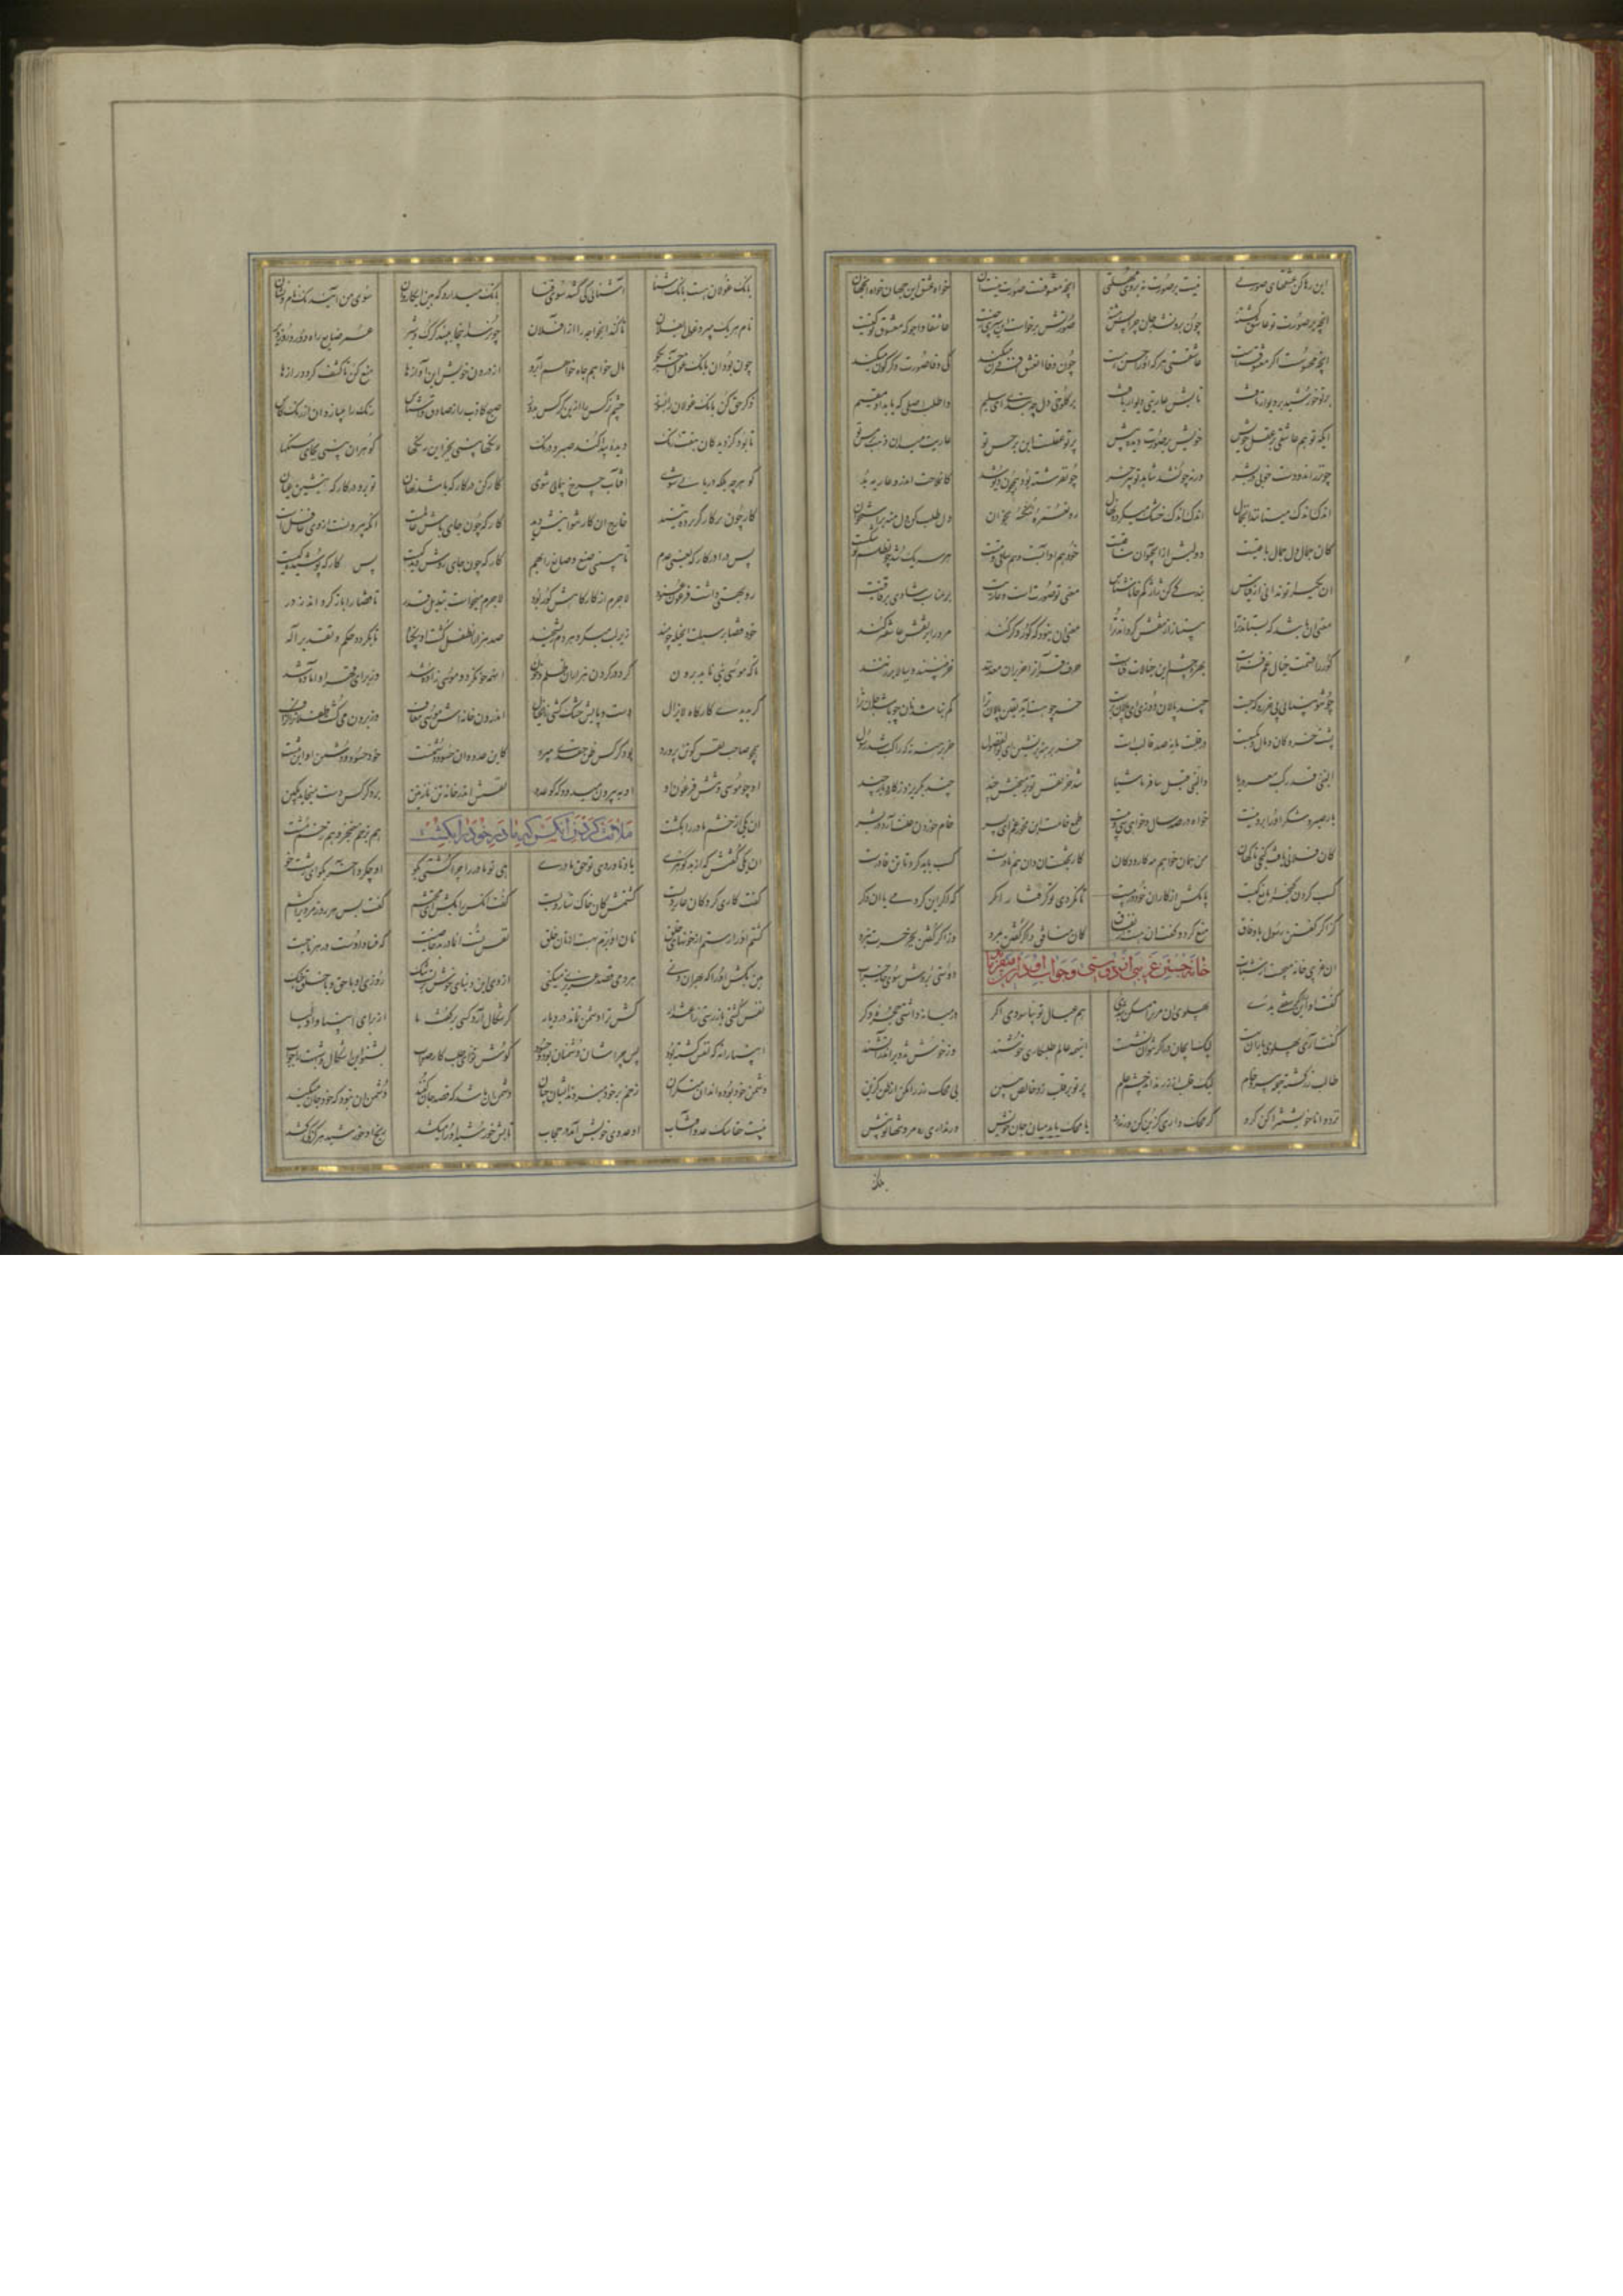 این رها کن عشقهای صورتی نیست بر صورت نه بر روی ستی انچه معشوقست صورت نیست ان خواه عشق این جهان خواه انجهان
انچه بر صورت تو عاشق گشته چون برون شد جان چرایش هشته صورتش برجاست این سیری ز چیست عاشقا واجو که معشوق تو کیست
انچه محسوسست اگر معشوقه است عاشقستی هر که او را حس هست چون وفا ان عشق افزون میکند کی وفا صورت دگرگون میکند
پرتو خورشید بر دیوار تافت تابش عاریتی دیوار یافت بر کلوخی دل چه بندی ای سلیم واطلب اصلی که تابد او مقیم
ایکه تو هم عاشقی بر عقل خویش خویش بر صورت دیده بیش پرتو عقلست این بر حس تو عاریت میدان ذهب بر مس تو
چون زراندودست خوبی در بشر ورنه چون شد شاهد تو پیر خر چون فرشته بود همچون دیو شد کان ملاحت اندرو عاریه بد
اندک اندک میستاند ان جمال اندک اندک خشک میگردد نهال رو نعمره ننکسه بخوان دل طلب کن دل منه بر استخوان
کان جمال دل جمال باقیست دولتش از اب حیوان ساقیست خود هم او ابست و هم ساقی و مست هر سه یک شد چون طلسم تو شکست
ان یکی را تو ندانی از قیاس بندگی کن ژاژ کم خا ناشناس معنی تو صورتست و عاریت بر مناسب شادی و بر قافیت
معنی ان باشد که بستاند ترا بی نیاز از نقش گرداند ترا معنی ان نبود که کور و کر کند مرد را بر نقش عاشقتر کند
کور را قسمت خیال غم فزاست بهره چشم این خیالات فناست حرف قرآن را ضریران معدنند خر نبینند و بپالان بر زنند
چون تو بینایی پی خر رو که جست چند پالان دوزی ای پالان پرست خر چو هست آید یقین پالان ترا کم نباشد نان چو باشد جان ترا
پشت خر دکان و مال و مکسبست در قلبت مایه صد قالبست خر برهنه برنشین ای بوالفضول خر برهنه نه که راکب شد رسول
النبی قد رکب معروریا والنبی قیل سافر ماشیا شد خر نفس تو بر میخیش بند چند بگریزد ز کار و بار چند
بار صبر و شکر او را بردنیست خواه در صد سال و خواهی سی و بیست طمع خامست این مخور خام ای پسر خام خوردن علت آرد در بشر
کان فلانی یافت گنجی ناگهان من همان خواهم نه کار و دکان کار بختست ان و ان هم نادرست کسب باید کرد تا تن قادرست
کسب کردن گنج را مانع کیست پا مکش از کار ان خود در پیست تا نگردی تو گرفتار اگر که اگر این کردمی یا ان دگر
کز اگر گفتن رسول با وفاق منع کرد و گفت ان هست از نفاق کان منافق در اگر گفتن بمرد وز اگر گفتن بجز حسرت نبرد
خانه جستن غریبی از دوستی و جواب او
ان غریبی خانه میجست از شتاب دوستی بردش سوی خانه خراب
گفت او این را اگر سقفی بدی پهلوی من مر ترا مسکن شدی هم عیال تو بیاسودی اگر در میانه داشتی حجره دگر
گفت آری پهلوی یاران لیک ای جان در اگر نتوان نشست اینهمه عالم طلبکاری خوشند وز خوش تزویر اندر آتشند
طالب زر گشته جمله پیر و خام لیک قلب از زر نداند چشم عام پرتو بر قلب زد خالص ببین بی محک زر را مکن از ظن گزین
نزد دانا خویشتن را کن گرو گر محک داری گزین کن ورنه رو یا محک باید میان جان خویش ور ندانی ره مرو تنها تو پیش
بانک
بانک غولان هست بانک آشنا آشنائی که کشد سوی فنا بانک میدارد که هین ای کاروان سوی من آیید نک راه و نشان
نام هر یک میبرد غول ای فلان تا کند ان خواجه را از آفلان چون رسد انجا ببیند گرگ و شیر عمر ضایع راه دور و روز دیر
چون بود ان بانک غول آخر بگو مال خواهم جاه خواهم آبرو از درون خویش این آوازها منع کن تا کشف گردد رازها
ذکر حق کن بانک غولان را بسوز چشم نرگس را ازین کرکس بدوز صبح کاذب را ز صادق واشناس رنک را باز دان از رنک کاس
تا بود کز دیدگان هفت رنک دیده پیدا کند صبر و درنک رنکها بینی بجز این رنکها گوهران بینی بجای سنکها
گوهر چه بلکه دریایی شوی آفتاب چرخ پیمای شوی کارکن در کارگه باشد نهان تو برو در کارگه بینش عیان
کار چون بر کارگر پرده تنید خارج ان کار نتوانیش دید کارگه چون جای باش عاملست انکه بیرونست از وی غافلست
پس درا در کارگه یعنی عدم تا ببینی صنع و صانع را بهم کارگه چون جای روشن دیدگیست پس کارگه پوشیدگیست
رو بهستی داشت فرعون عنود لاجرم از کارگاهش کور بود لاجرم میخواست تبدیل قدر تا قضا را باز گرداند ز در
خود قضا بر سبلت ان حیله مند زیر لب میکرد هر دم ریشخند صد هزاران طفل کشت او بیگناه تا بگردد حکم و تقدیر اله
تا که موسی نبی ناید برون کرد در گردن هزاران ظلم و خون ان همه خون کرد و موسی زاده شد وز برای قهر او آماده شد
گر بدیدی کارگاه لایزال دست و پایش خشک گشتی ز احتیال اندرون خانه اش موسی معاف وز برون می کشت طفلان را گزاف
همچو صاحب نفس کو تن پرورد بر دگر کس ظن حقدی میبرد کاین عدو و ان حسود و دشمنست خود حسود و دشمن او این تنست
او چو موسی و تنش فرعون او او به بیرون میدود که کو عدو نفسش اندر خانه تن نازنین بر دگر کس دست میخاید بکین
ملامت کردن آنکس که مادر خود را بکشت
ان یکی از خشم مادر را بکشت هم بزخم خنجر و هم زخم مشت
ان یکی گفتش که از بد گوهری یاد ناوردی تو حق مادری هی تو مادر را چرا کشتی بگو او چه کرد آخر بگو ای زشت خو
گفت کاری کرد کان عار ویست کشتمش کان خاک ستار ویست گفت آنکس را بکش ای محتشم گفت پس هر روز مردی را کشم
کشتم او را رستم از خونهای خلق نای او برم بهست از نای خلق نفس تست ان مادر بد خاصیت که فساد اوست در هر ناحیت
هین بکش او را که بهر ان دنی هر دمی قصد عزیزی میکنی از وی این دنیای خوش بر تست تنک از پی او با حق و با خلق جنک
نفس کشتی باز رستی ز اعتذار کس ترا دشمن نماند در دیار گر شکال آرد کسی بر گفت ما از برای انبیا و اولیا
انبیا را نه که نفس کشته بود پس چراشان دشمنان بود و حسود گوش نه تو ای طلبکار صواب بشنو این اشکال و شبهت را جواب
دشمن خود بوده اند ان منکران زخم بر خود میزدند ایشان چنان دشمن ان باشد که قصد جان کند دشمن ان نبود که خود جان میکند
نیست خفاشک عدو آفتاب او عدوی خویش آمد در حجاب تابش خورشید او را میکشد رنج او خورشید هرگز کی کشد